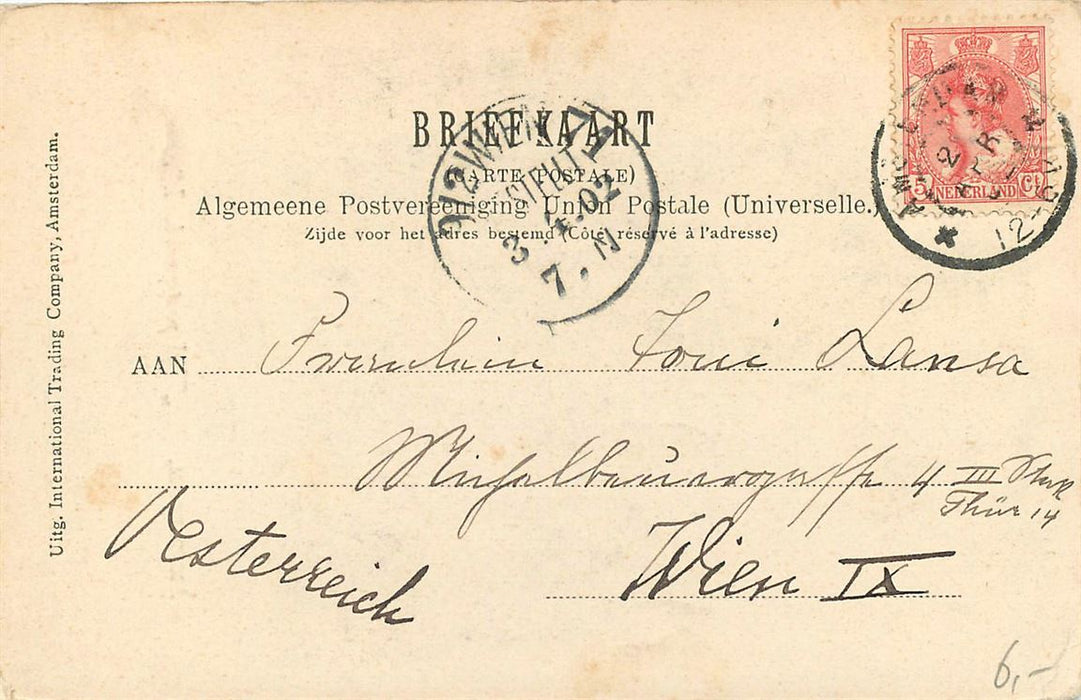 BRIEFKAART
(CARTE POSTALE)
Algemeene Postvereeniging Union Postale (Universelle.)
Zijde voor het adres bestemd (Côté réservé à l'adresse)
5 NEDERLAND Ct
WIEN
BESTELLT
3.4.02
7.N
12
AAN Fraeulein Toni Lansa
Michelbeuerngasse 4 III Stock
Thür 14
Wien IX
Oesterreich
Uitg. International Trading Company, Amsterdam.
6,-